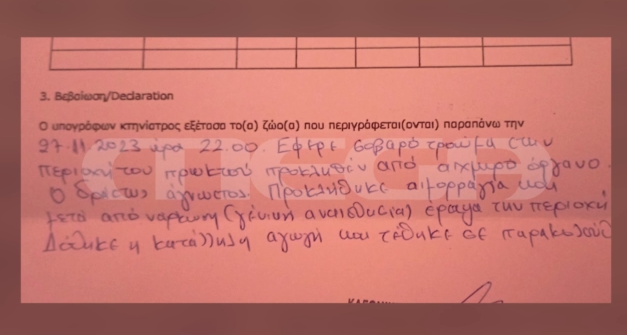 3. Βεβαίωση/Declaration
Ο υπογράφων κτηνίατρος εξέτασα το(α) ζώο(α) που περιγράφεται(ονται) παραπάνω την
27.11.2023 ώρα 22.00 Έφερε σοβαρό τραύμα στην
περιοχή του πρωκτού προκληθέν από αιχμηρό όργανο.
Ο δράστης άγνωστος. Προκλήθηκε αιμορραγία και
μετά από νάρκωση (γενική αναισθησία) έραψα την περιοχή
Δόθηκε η κατάλληλη αγωγή και τέθηκε σε παρακολούθ